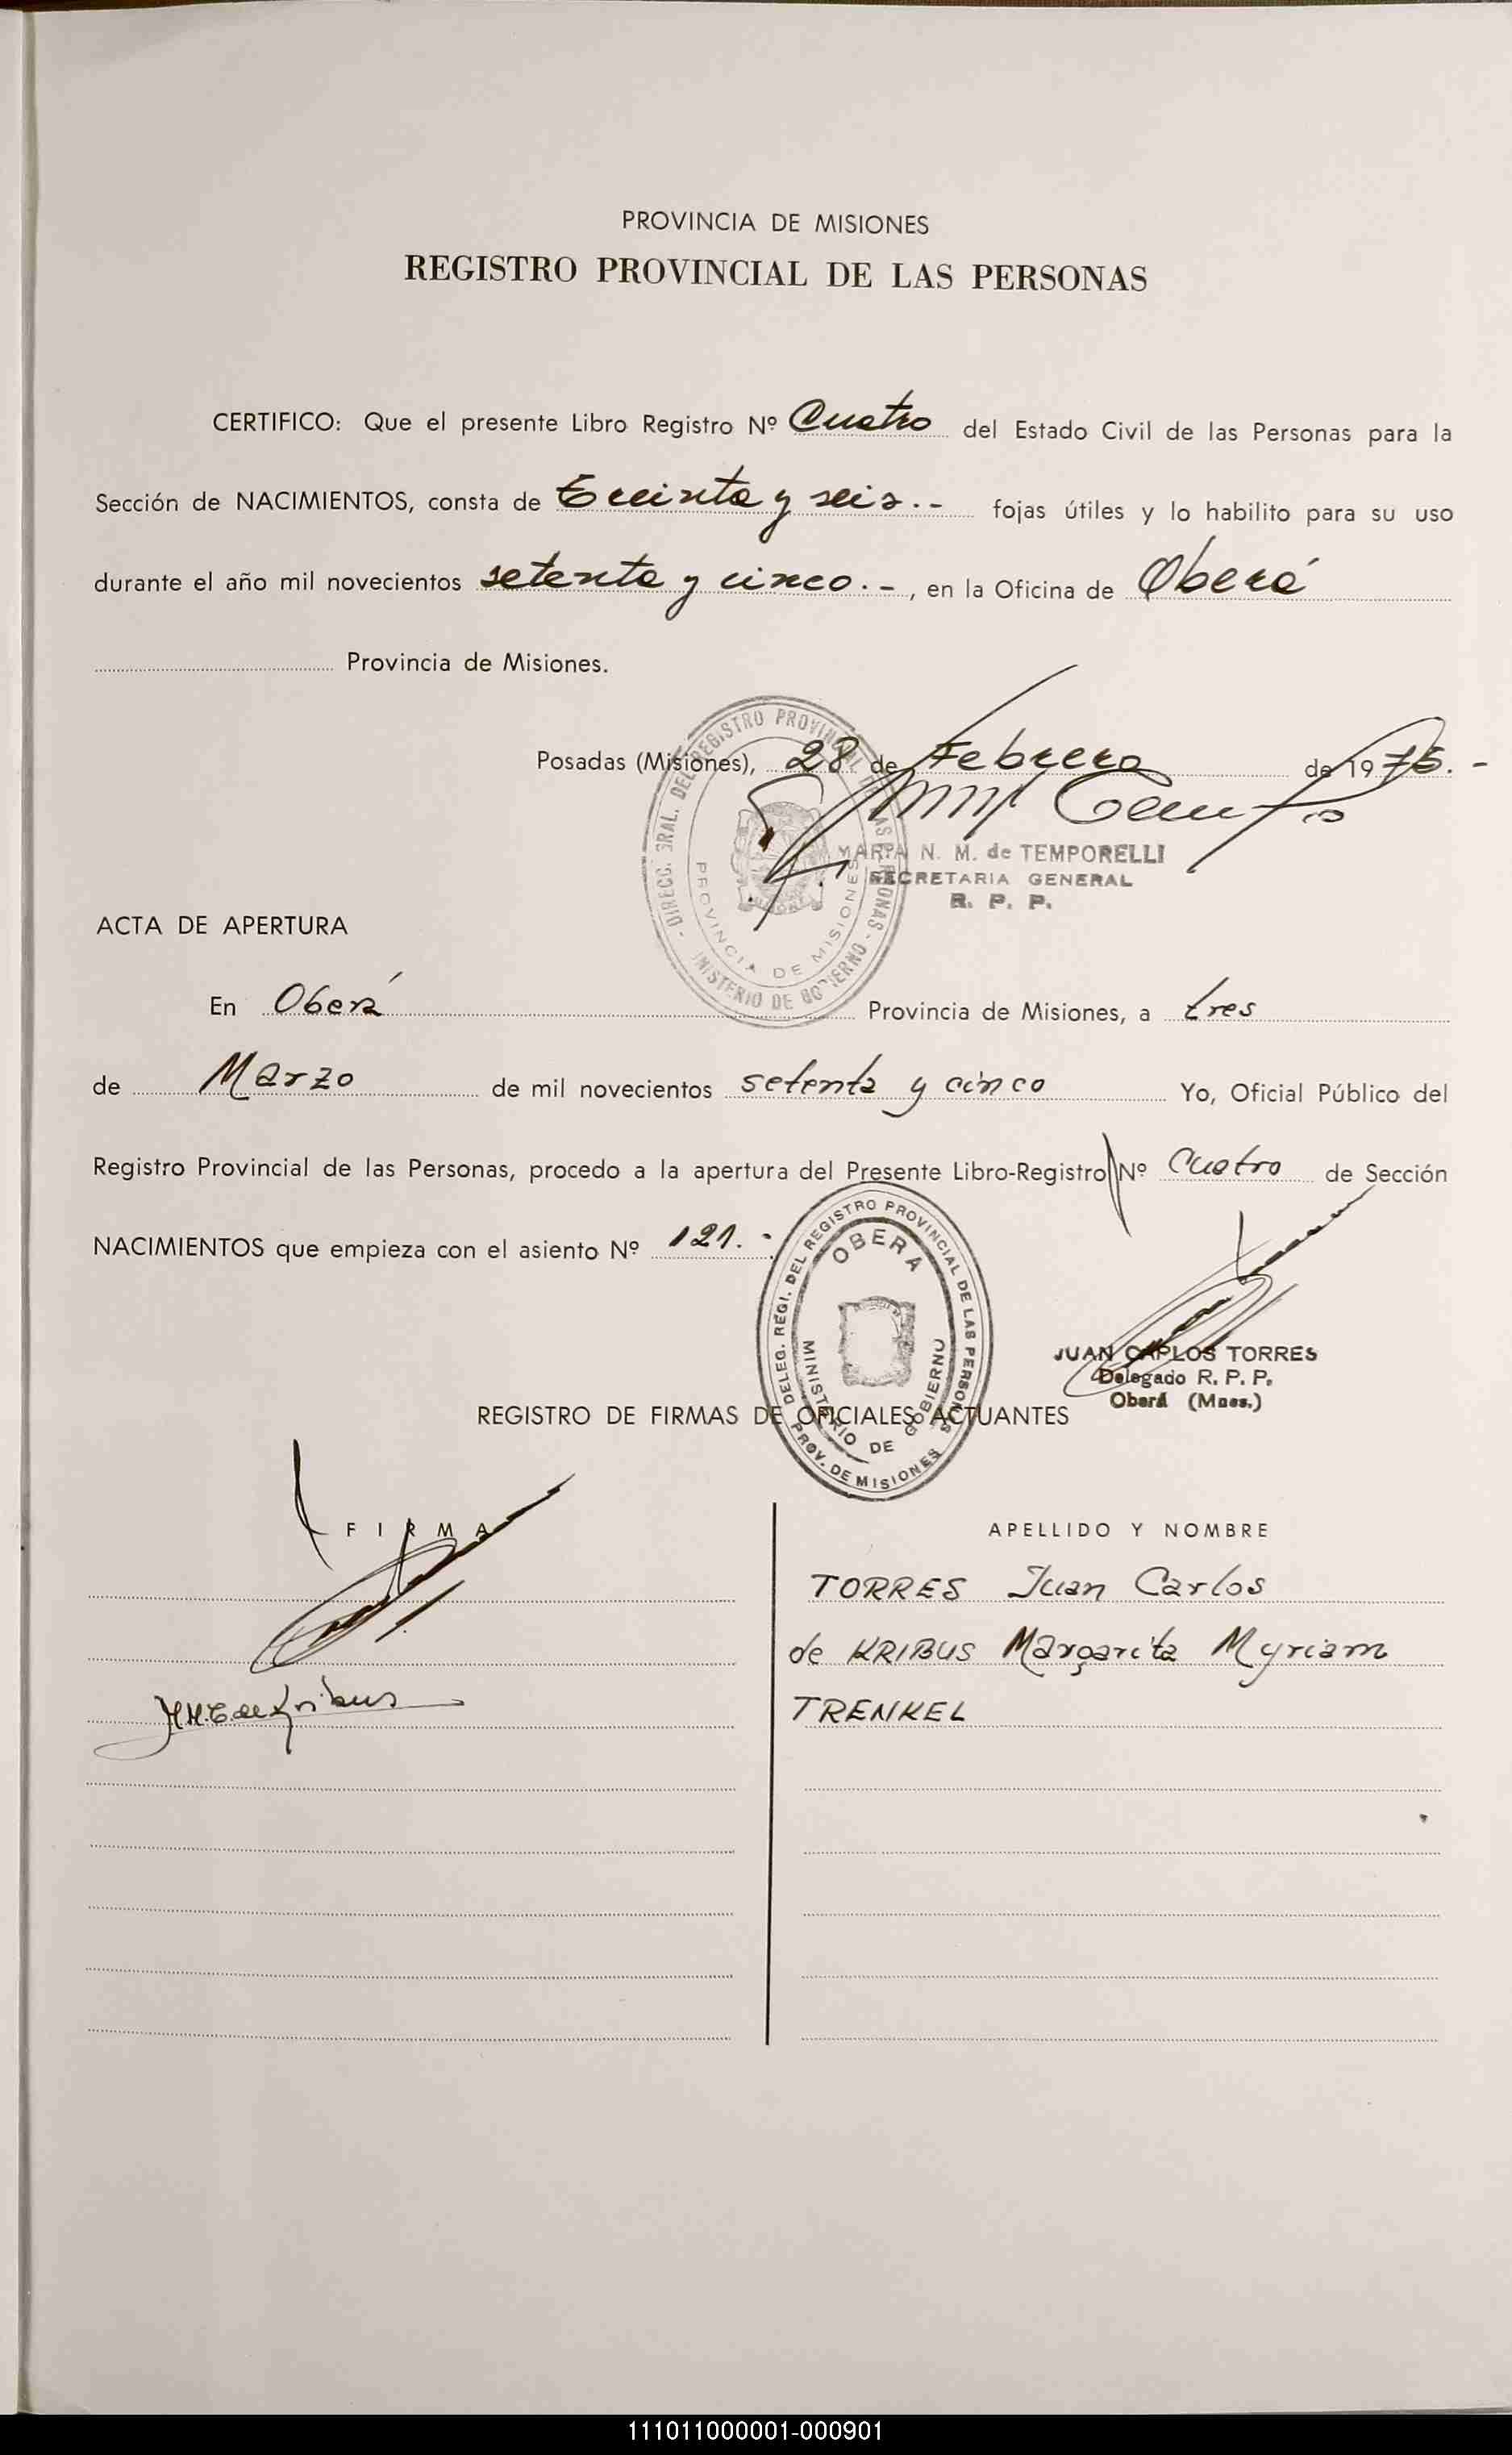 PROVINCIA DE MISIONES
REGISTRO PROVINCIAL DE LAS PERSONAS
CERTIFICO: Que el presente Libro Registro Nº Cuatro del Estado Civil de las Personas para la
Sección de NACIMIENTOS, consta de Treinta y seis.- fojas útiles y lo habilito para su uso
durante el año mil novecientos setenta y cinco.-, en la Oficina de Oberá
Provincia de Misiones.
Posadas (Misiones), 28 de Febrero de 1975.-
DIRECC. GRAL. DEL REGISTRO PROVINCIAL DE LAS PERSONAS - MINISTERIO DE GOBIERNO -
PROVINCIA DE MISIONES
MARIA N. M. de TEMPORELLI
SECRETARIA GENERAL
R. P. P.
ACTA DE APERTURA
En Oberá Provincia de Misiones, a tres
de Marzo de mil novecientos setenta y cinco Yo, Oficial Público del
Registro Provincial de las Personas, procedo a la apertura del Presente Libro-Registro Nº Cuatro de Sección
NACIMIENTOS que empieza con el asiento Nº 121.-
DELEG. REGI. DEL REGISTRO PROVINCIAL DE LAS PERSONAS
OBERA
MINISTERIO DE GOBIERNO
PROV. DE MISIONES
JUAN CARLOS TORRES
Delegado R. P. P.
Oberá (Mnes.)
REGISTRO DE FIRMAS DE OFICIALES ACTUANTES
FIRMA
APELLIDO Y NOMBRE
TORRES Juan Carlos
de KRIBUS Margarita Myriam
M.M.T. de Kribus
TRENKEL
111011000001-000901